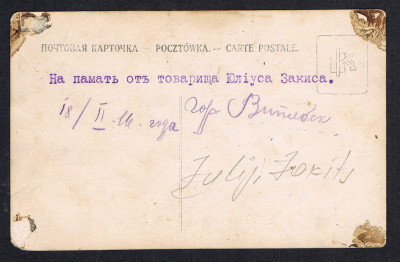 ПОЧТОВАЯ КАРТОЧКА — POCZTÓWKA. — CARTE POSTALE.
На память отъ товарища Юліуса Закиса.
18/II 16. года
гор Витебск